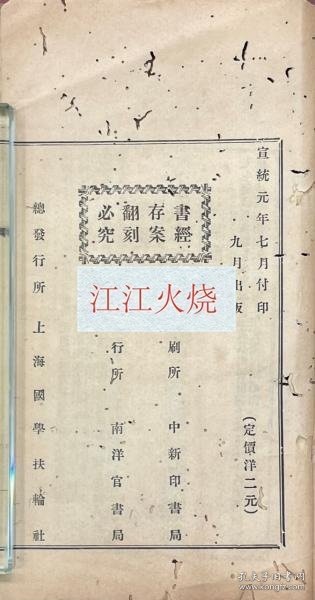 宣統元年七月付印
九月出版
(定價洋二元)
書經
存案
翻刻
必究
刷所 中新印書局
行所 南洋官書局
總發行所 上海國學扶輪社
江江火烧
孔夫子旧书网